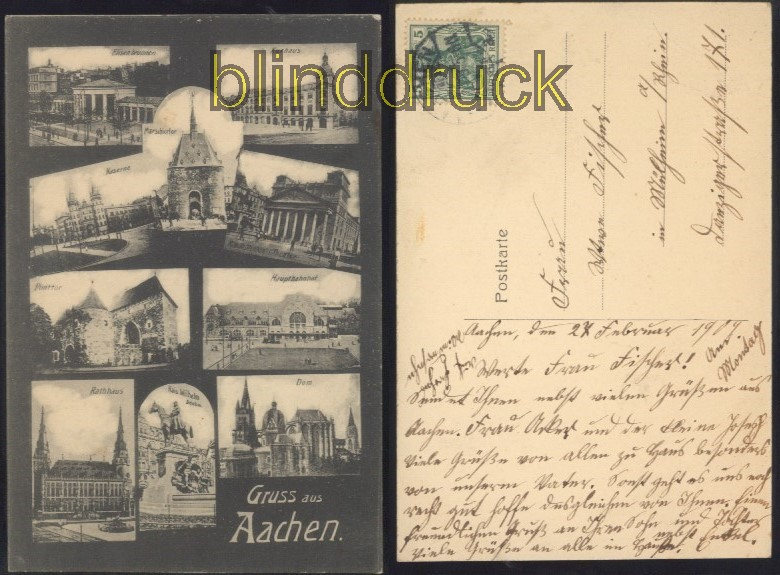 blinddruck
Elisenbrunnen
Kurhaus
Marschiertor
Kaserne
Ponttor
Hauptbahnhof
Rathhaus
Kais. Wilhelm
Dom
Gruss aus
Aachen.
5
Postkarte
Frau
Witwe Fischer
in Mülheim a/Rhein.
Danzigerstraße 171.
Aachen, den 27 Februar 1909
Werte Frau Fischer!
Sendet Ihnen nebst vielen Grüßen aus
Aachen. Frau und der kleine Joseph
viele Grüße von allen zu Haus besonders
von unserem Vater. Sonst geht es uns noch
recht gut hoffe desgleichen von Ihnen. Einen
freundlichen Gruß an Ihren Sohn und Tochter
nebst Enkel.
viele Grüße an alle im Hause.
Montag